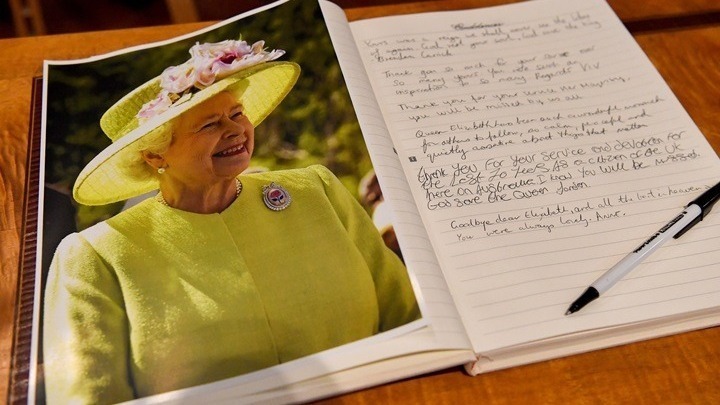 Condolences
Yours was a reign we shall never see the like
of again. God rest your soul, God save the King
Thank you so much for your service over
so many years. You have been an
inspiration to so many. Regards Viv
Thank you for your service Her Majesty,
you will be missed by us all
Queen Elizabeth has been a wonderful monarch
for others to follow, so calm, peaceful and
quietly assertive about things that matter
Thank you for your service and devotion for
the last 70 years as a citizen of the UK
here on Australia I know you will be missed.
God save the Queen
Goodbye dear Elizabeth, and all the best in heaven
You were always lovely. Anne.